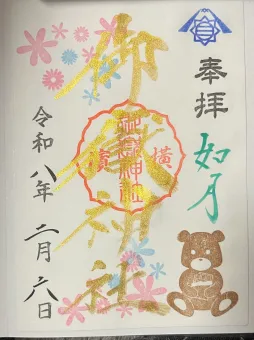 奉拝
如月
御嶽神社
横濱
御嶽神社
令和八年二月六日